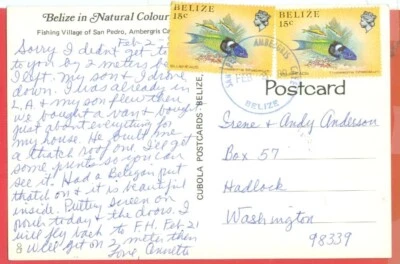 Belize in Natural Colour
Fishing Village of San Pedro, Ambergris
Feb.
Sorry I didn't get to
to you by 2 meters before
I left. My son & I drove
down. I was already in
L.A & my son flew then
we bought a van & bought
just about everything for
my house. He built me
a thatch roof one. I'll get
some prints so you can
see it. Had a Belizean put
thatch on & it is beautiful
inside. Putting screen on
porch today & the doors. I
will fly back to F.H. Feb. 21
& will get on 2 meter then
Love, Annette
CUBOLA POSTCARDS BELIZE,
BELIZE
18c
BELIZE
18c
SAN PEDRO AMBERGRIS
FEB
BELIZE
Postcard
Irene & Andy Anderson
Box 57
Hadlock
Washington
98339